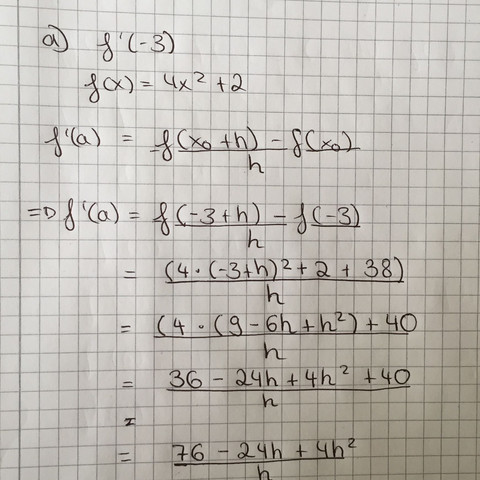 a) f'(-3)
f(x) = 4x² + 2
f'(a) = f(x₀ + h) - f(x₀) / h
=> f'(a) = f(-3 + h) - f(-3) / h
= (4 · (-3+h)² + 2 + 38) / h
= (4 · (9 - 6h + h²) + 40 / h
= 36 - 24h + 4h² + 40 / h
=
= 76 - 24h + 4h² / h